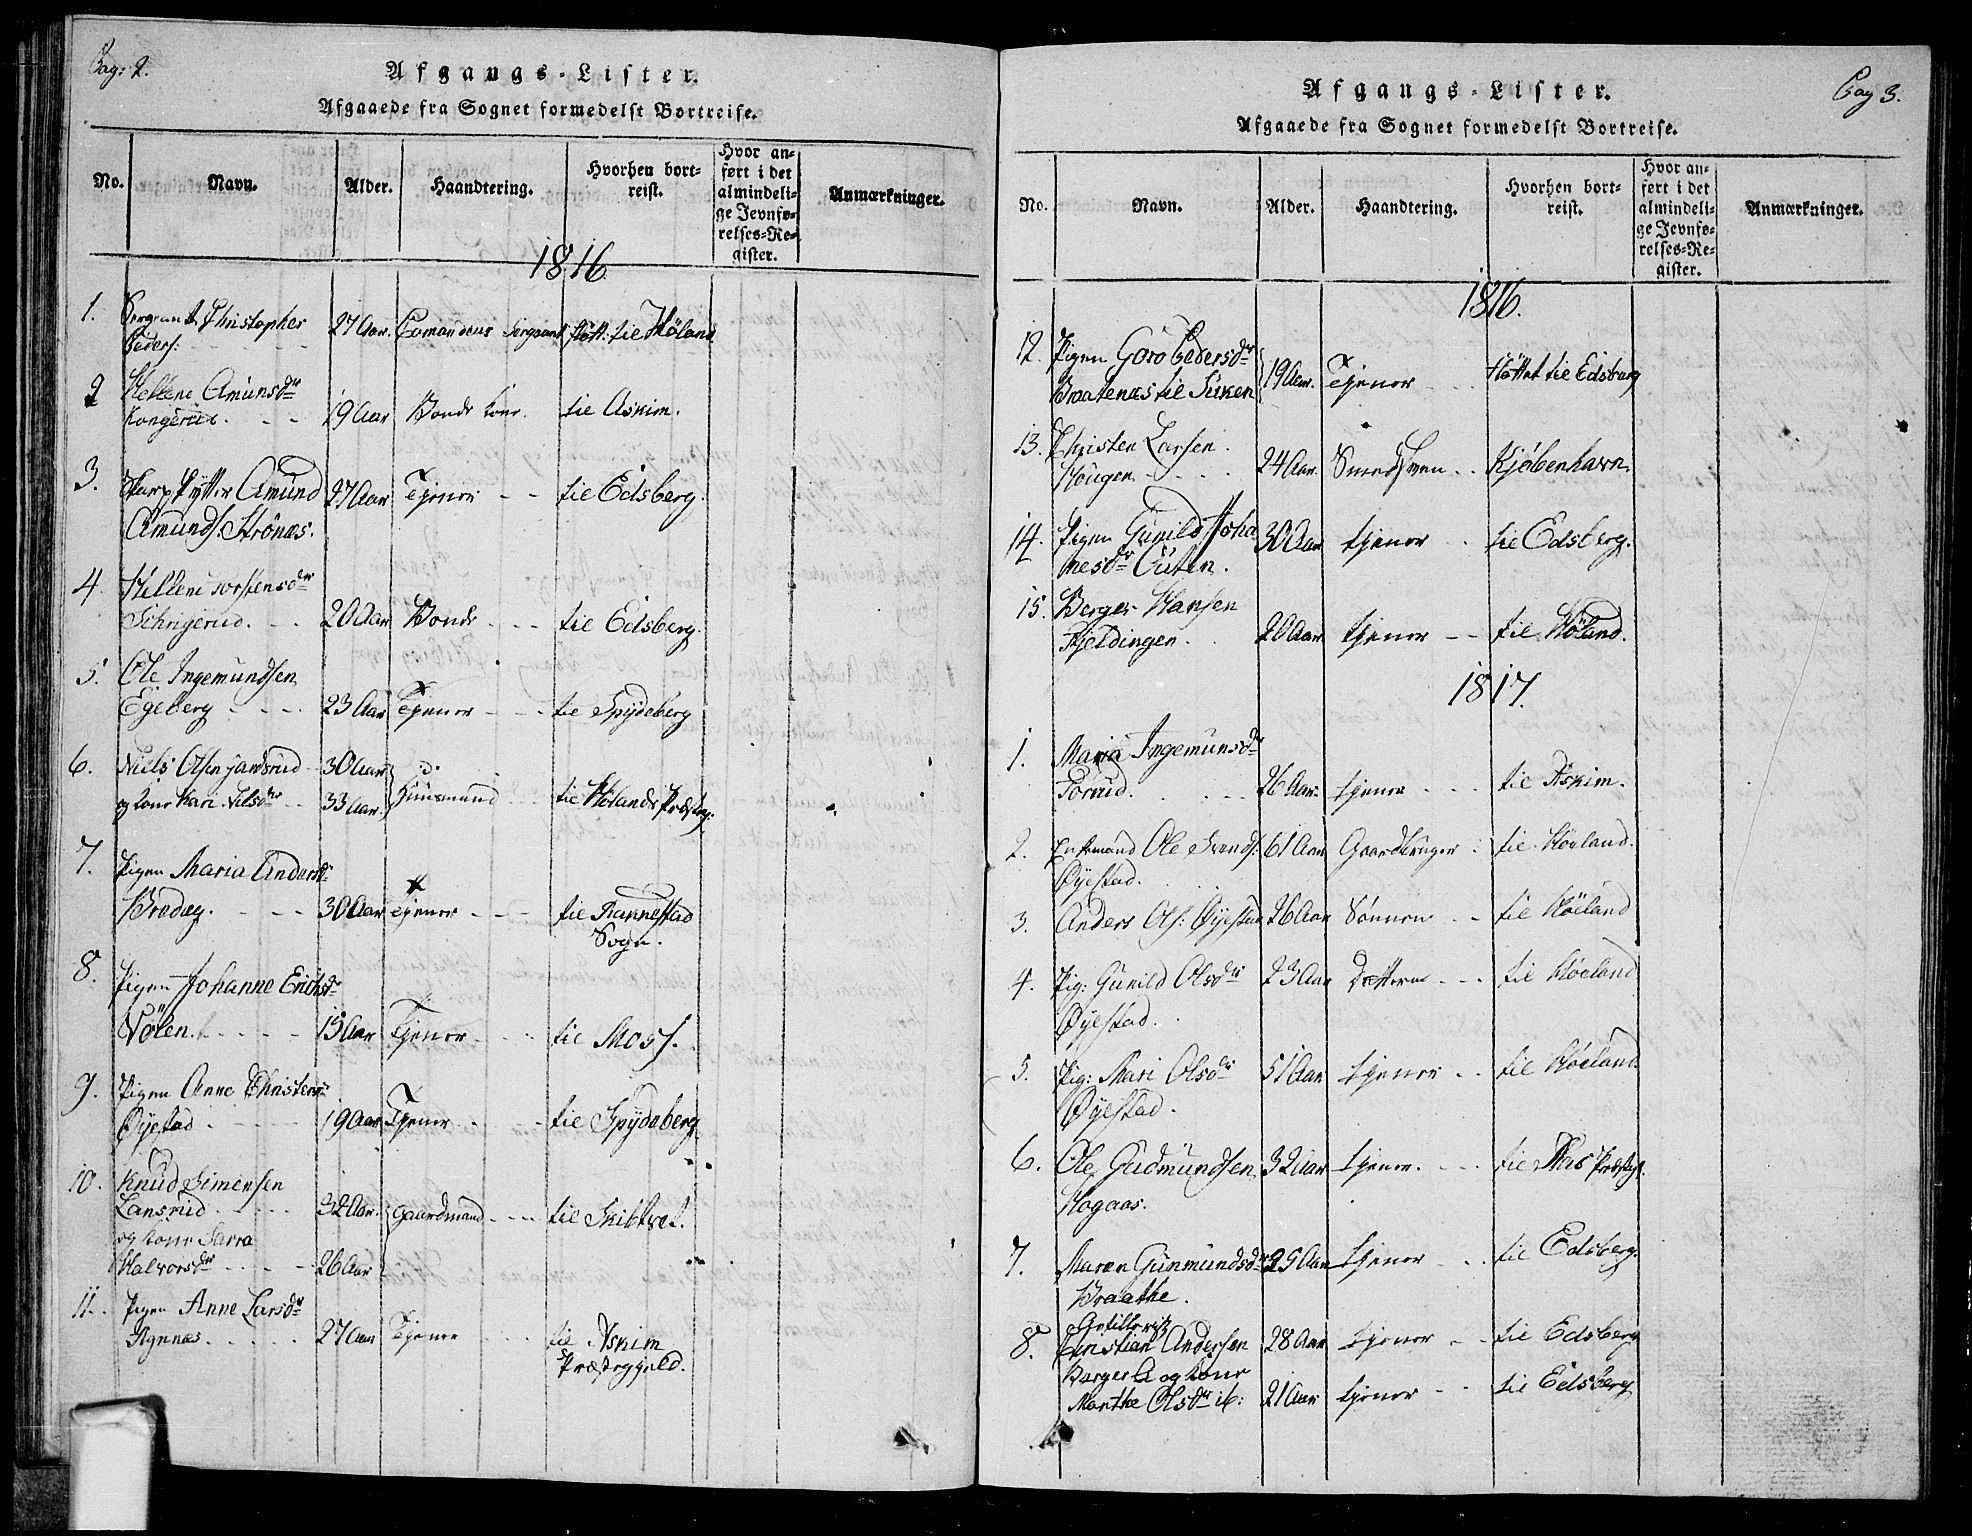 Pag: 2.
Afgangs-Lister.
Afgaaede fra Sognet formedelst Bortreise.
No. Navn. Alder. Haandtering. Hvorhen bortreist. Hvor anført i det almindelige Jevnførelses-Register. Anmærkninger.
1816
1. Sergeant Christopher 27 Aar. Sergeant flött: til Höland
Peders:
2 Hellene Amunsdr
Kongerud. 19 Aar Bonde kone. til Askim.
3. Skarpskytter Amund 27 Aar Tjener til Edsberg.
Amunds. Strönæs.
4. Hellene Torstensdr
20 Aar Bonde til Edsberg.
5. Ole Ingemundsen
Egeberg 23 Aar Tjener til Spydeberg
6. Niels Olsen 30 Aar
og kone Kari Nilsdr 33 Aar. Huusmand til Hölands Præsteg:
7. Pigen Maria Andersdr
30 Aar tjener til Rannestad
Sogn.
8. Pigen Johanne Erichsdr
Völen. 15 Aar Tjener til Moss.
9. Pigen Anne Christensdr
Öyestad 19 Aar Tjener til Spydeberg
10. Knud Simensen
Lansrud 32 Aar. Gaardmand til Skibtvet.
og kone Sarra
Halvorsdr 26 Aar
11. Pigen Anne Larsdr
Agnnæs 27 Aar Tjener til Askim
Præstegjeld.
Pag 3.
Afgangs-Lister.
Afgaaede fra Sognet formedelst Bortreise.
No. Navn. Alder. Haandtering. Hvorhen bortreist. Hvor anført i det almindelige Jevnførelses-Register. Anmærkninger.
1816.
12. Pigen Goro Pedersdr
Braatenæs til 19 Aar. Tjener flöttet til Edsberg
13. Christen Larsen
Hougen 24 Aar. Smedsven Kjöbenhavn.
14. Pigen Gunild Joha 30 Aar tjener til Edsberg.
nesdr
15. Berger Hansen
Kjeldingen. 20 Aar tjener til Höland.
1817.
1. Maria Ingemunsdr
Torud. 26 Aar. tjener til Askim.
2. Enkemand Ole Svends. 61 Aar Gaardbruger til Höeland.
Öyestad.
3. Anders Ols: Öyestad 26 Aar Sönnen til Höeland
4. Pig: Gunild Olsdr 23 Aar Dotteren til Höeland
Öyestad.
5. Pig: Mari Olsdr 51 Aar tjener til Höeland.
Öyestad.
6. Ole Gudmundsen 32 Aar tjener. til Aas Præsteg.
Hogaas.
7. Maren Gunmundsdr 25 Aar tjener til Edsberg.
Braathe.
Artillerist
8. Christian Andersen 28 Aar tjener til Edsberg
og kone
Marthe Olsdr ib: 21 Aar tjener til Edsberg